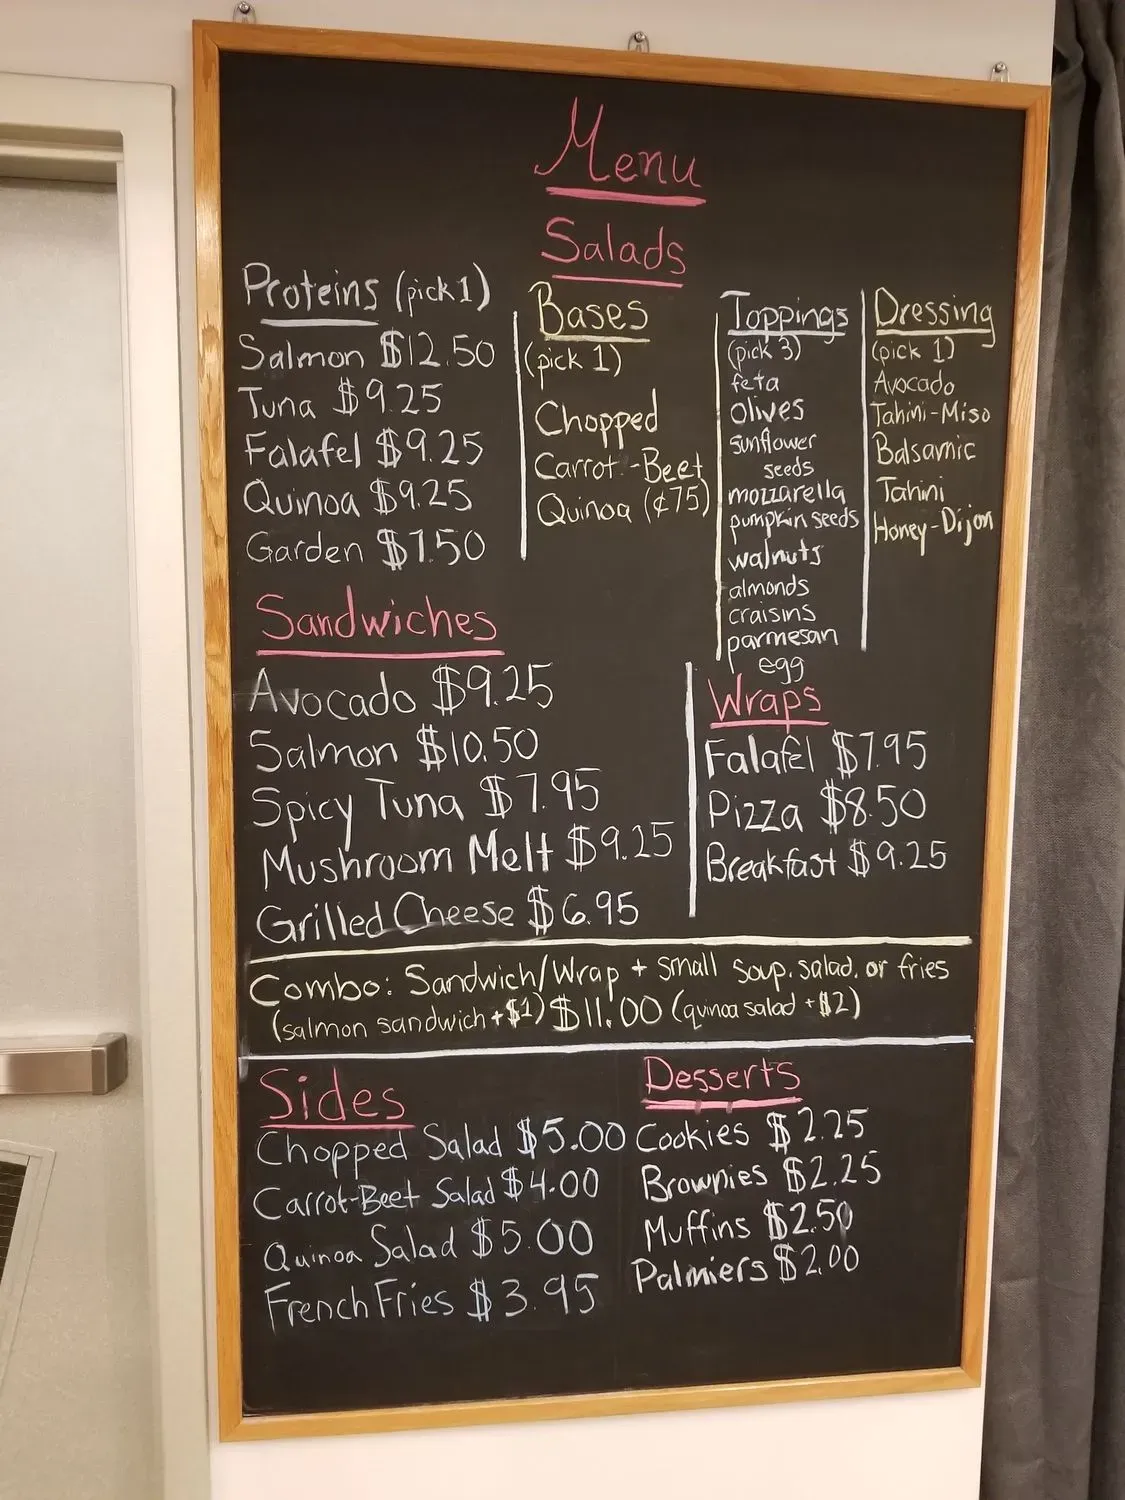 Menu
Salads
Proteins (pick 1)
Salmon $12.50
Tuna $9.25
Falafel $9.25
Quinoa $9.25
Garden $7.50
Bases
(pick 1)
Chopped
Carrot-Beet
Quinoa (¢75)
Toppings
(pick 3)
feta
olives
sunflower
seeds
mozzarella
pumpkin seeds
walnuts
almonds
craisins
parmesan
egg
Dressing
(pick 1)
Avocado
Tahini-Miso
Balsamic
Tahini
Honey-Dijon
Sandwiches
Avocado $9.25
Salmon $10.50
Spicy Tuna $7.95
Mushroom Melt $9.25
Grilled Cheese $6.95
Wraps
Falafel $7.95
Pizza $8.50
Breakfast $9.25
Combo: Sandwich/Wrap + small soup, salad, or fries
(salmon sandwich +$1) $11.00 (quinoa salad +$2)
Sides
Chopped Salad $5.00
Carrot-Beet Salad $4.00
Quinoa Salad $5.00
French Fries $3.95
Desserts
Cookies $2.25
Brownies $2.25
Muffins $2.50
Palmiers $2.00